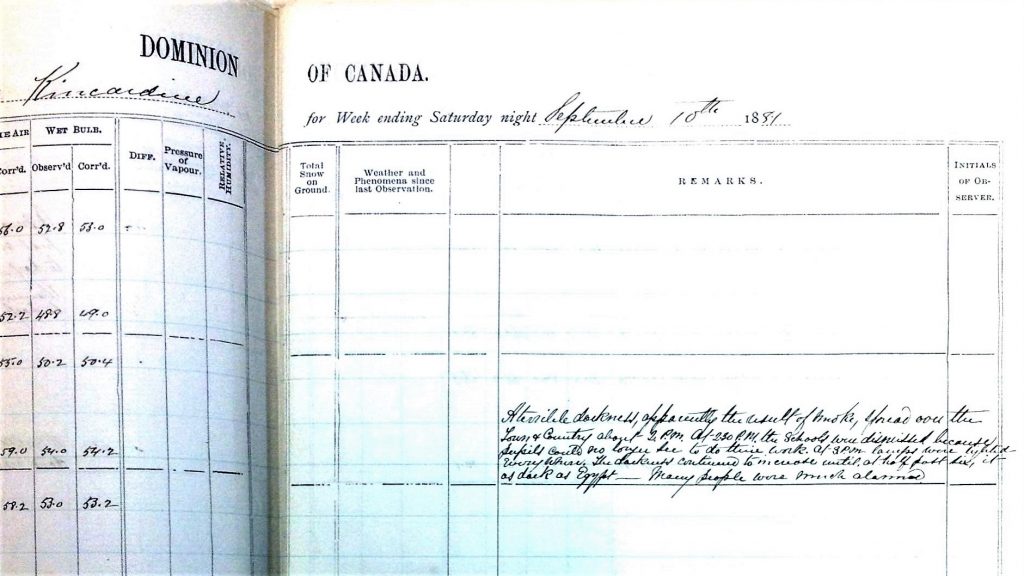 DOMINION
OF CANADA.
Kincardine
for Week ending Saturday night September 10th 1881
E AIR
WET BULB.
Corr'd.
Observ'd
Corr'd.
DIFF.
Pressure of Vapour.
RELATIVE HUMIDITY.
Total Snow on Ground.
Weather and Phenomena since last Observation.
REMARKS.
INITIALS OF OBSERVER.
56.0 52.8 53.0
52.2 48.8 49.0
53.0 50.2 50.4
59.0 54.0 54.2
58.2 53.0 53.2
A terrible darkness, apparently the result of smoke, spread over the
Town & Country about 2 P.M. At 2 30 P.M. the Schools were dismissed because
pupils could no longer see to do their work. At 3 P.M. lamps were lighted
everywhere. The darkness continued to increase until, at half past six, it
as dark as Egypt — Many people were much alarmed